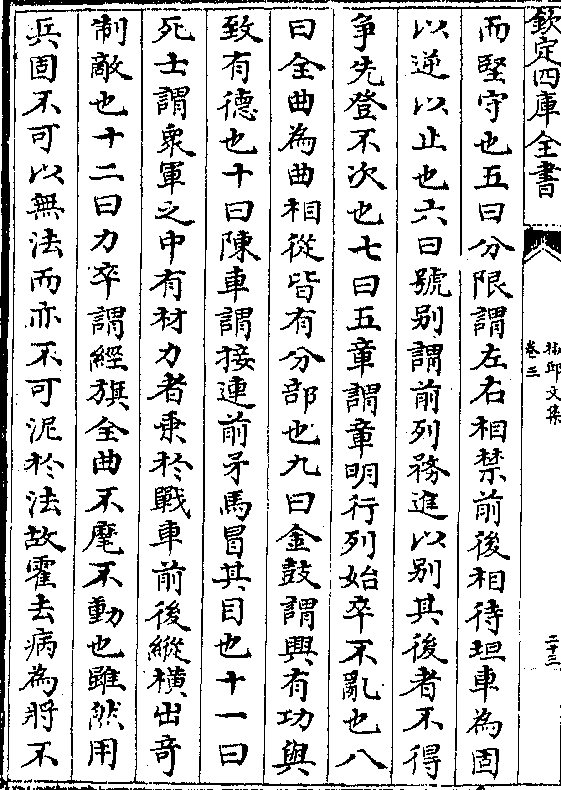 欽定四庫全書
邱文集
卷三
二十三
而堅守也五曰分限謂左右相禁前後相待垣車為固
以逆以止也六曰號别謂前列務進以别其後者不得
争先登不次也七曰五章謂章明行列始卒不亂也八
曰全曲為曲相從皆有分部也九曰金鼓謂興有功與
致有德也十曰陳車謂接連前矛馬冒其目也十一曰
死士謂衆軍之中有材力者乗於戰車前後縱横出竒
制敵也十二曰力卒謂經旗全曲不麾不動也雖然用
兵固不可以無法而亦不可泥於法故霍去病為將不